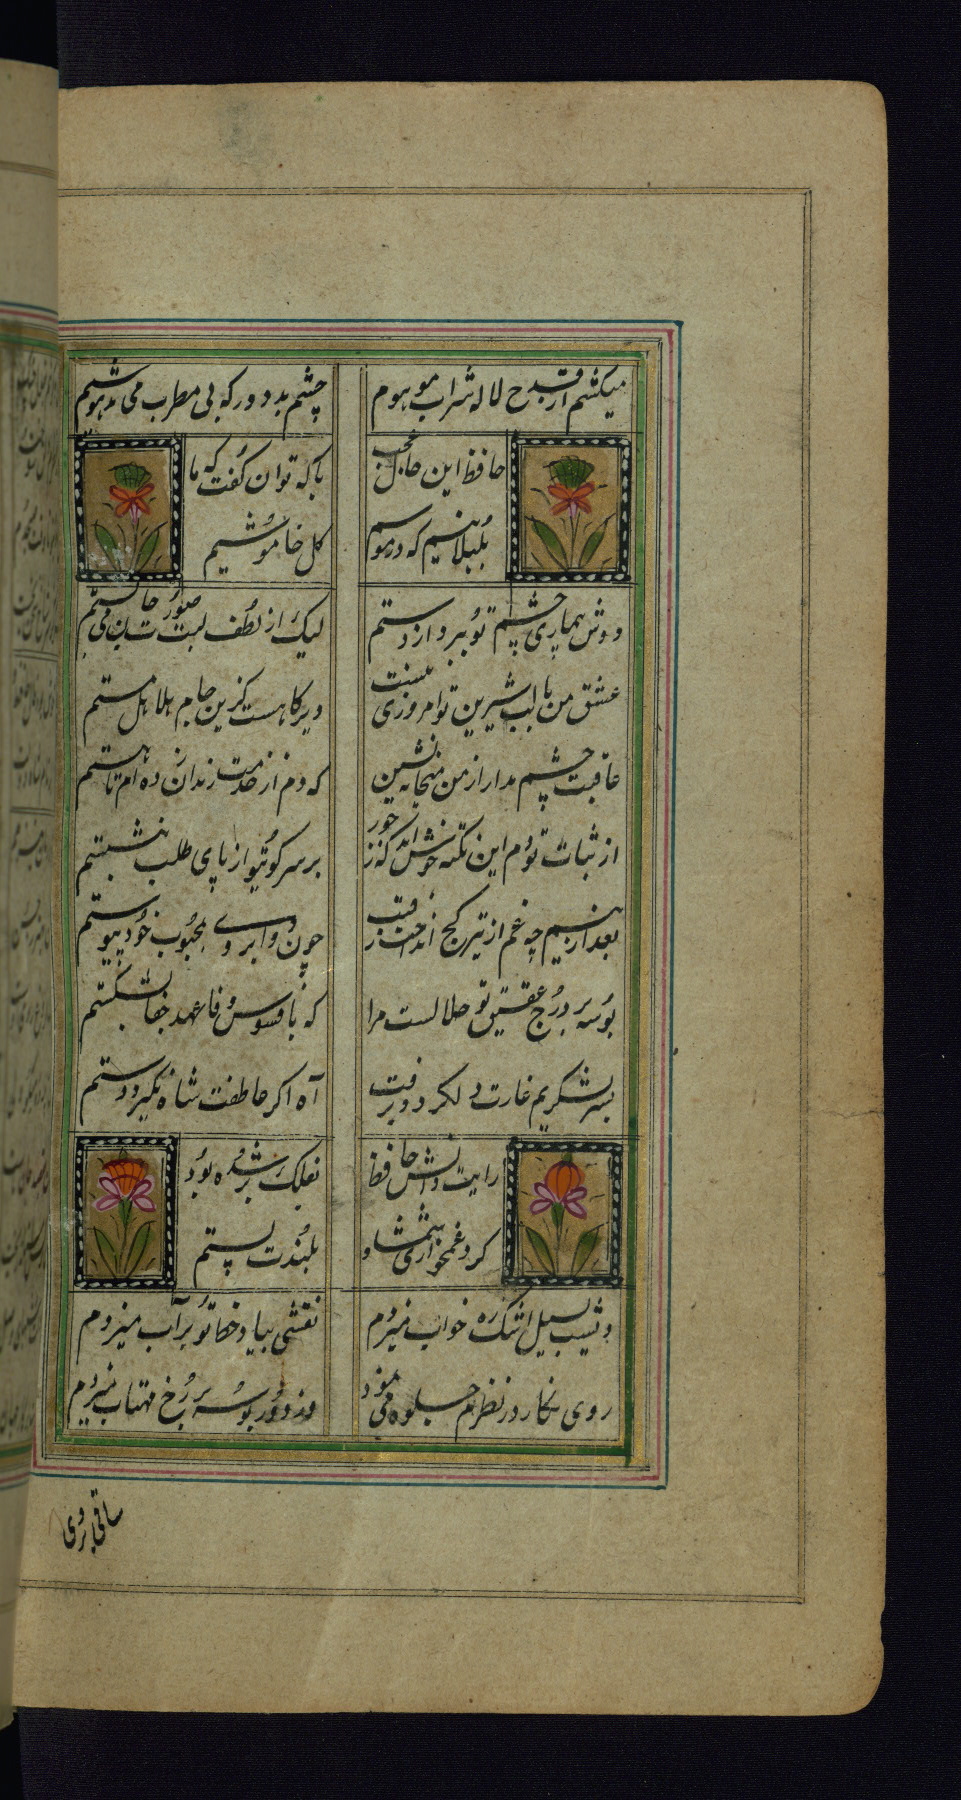 میکشیم از قدح لاله شراب موهوم
چشم بد دور که بی مطرب می مدهوشیم
حافظ این حال عجب
با که توان گفت که ما
بلبلانیم که در موسم
گل خاموشیم
دوش بیماری چشم تو ببرد از دستم
لیک از لطف لبت صورت جان می بستم
عشق من با لب شیرین تو امروزی نیست
دیرکاهست کزین جام هلاهل مستم
عاقبت چشم مدار از من میخانه نشین
که دم از خدمت رندان زده ام تا هستم
از ثبات توم این نکته خوش آمد که ز جور
بر سر کوی تو از پای طلب ننشستم
بعد ازینم چه غم از تیر کج انداخت رقیب
چون دو ابروی محبوب خود پیوستم
بوسه بر درج عقیق تو حلالست مرا
که بافسوس وفا عهد جفا نشکستم
لشکریم غارت دل کرد و برفت
آه اکر عاطفت شاه نکیرد دستم
رایت دانش حافظ
بفلک بر شده بود
کرد غمخواری شمشاد
بلندت پستم
دیشب بسیل اشک ره خواب میزدم
نقشی بیاد خط تو بر آب میزدم
روی نکار در نظرم جلوه می نمود
وز دور بوسه بر رخ مهتاب میزدم
ساقی بروی